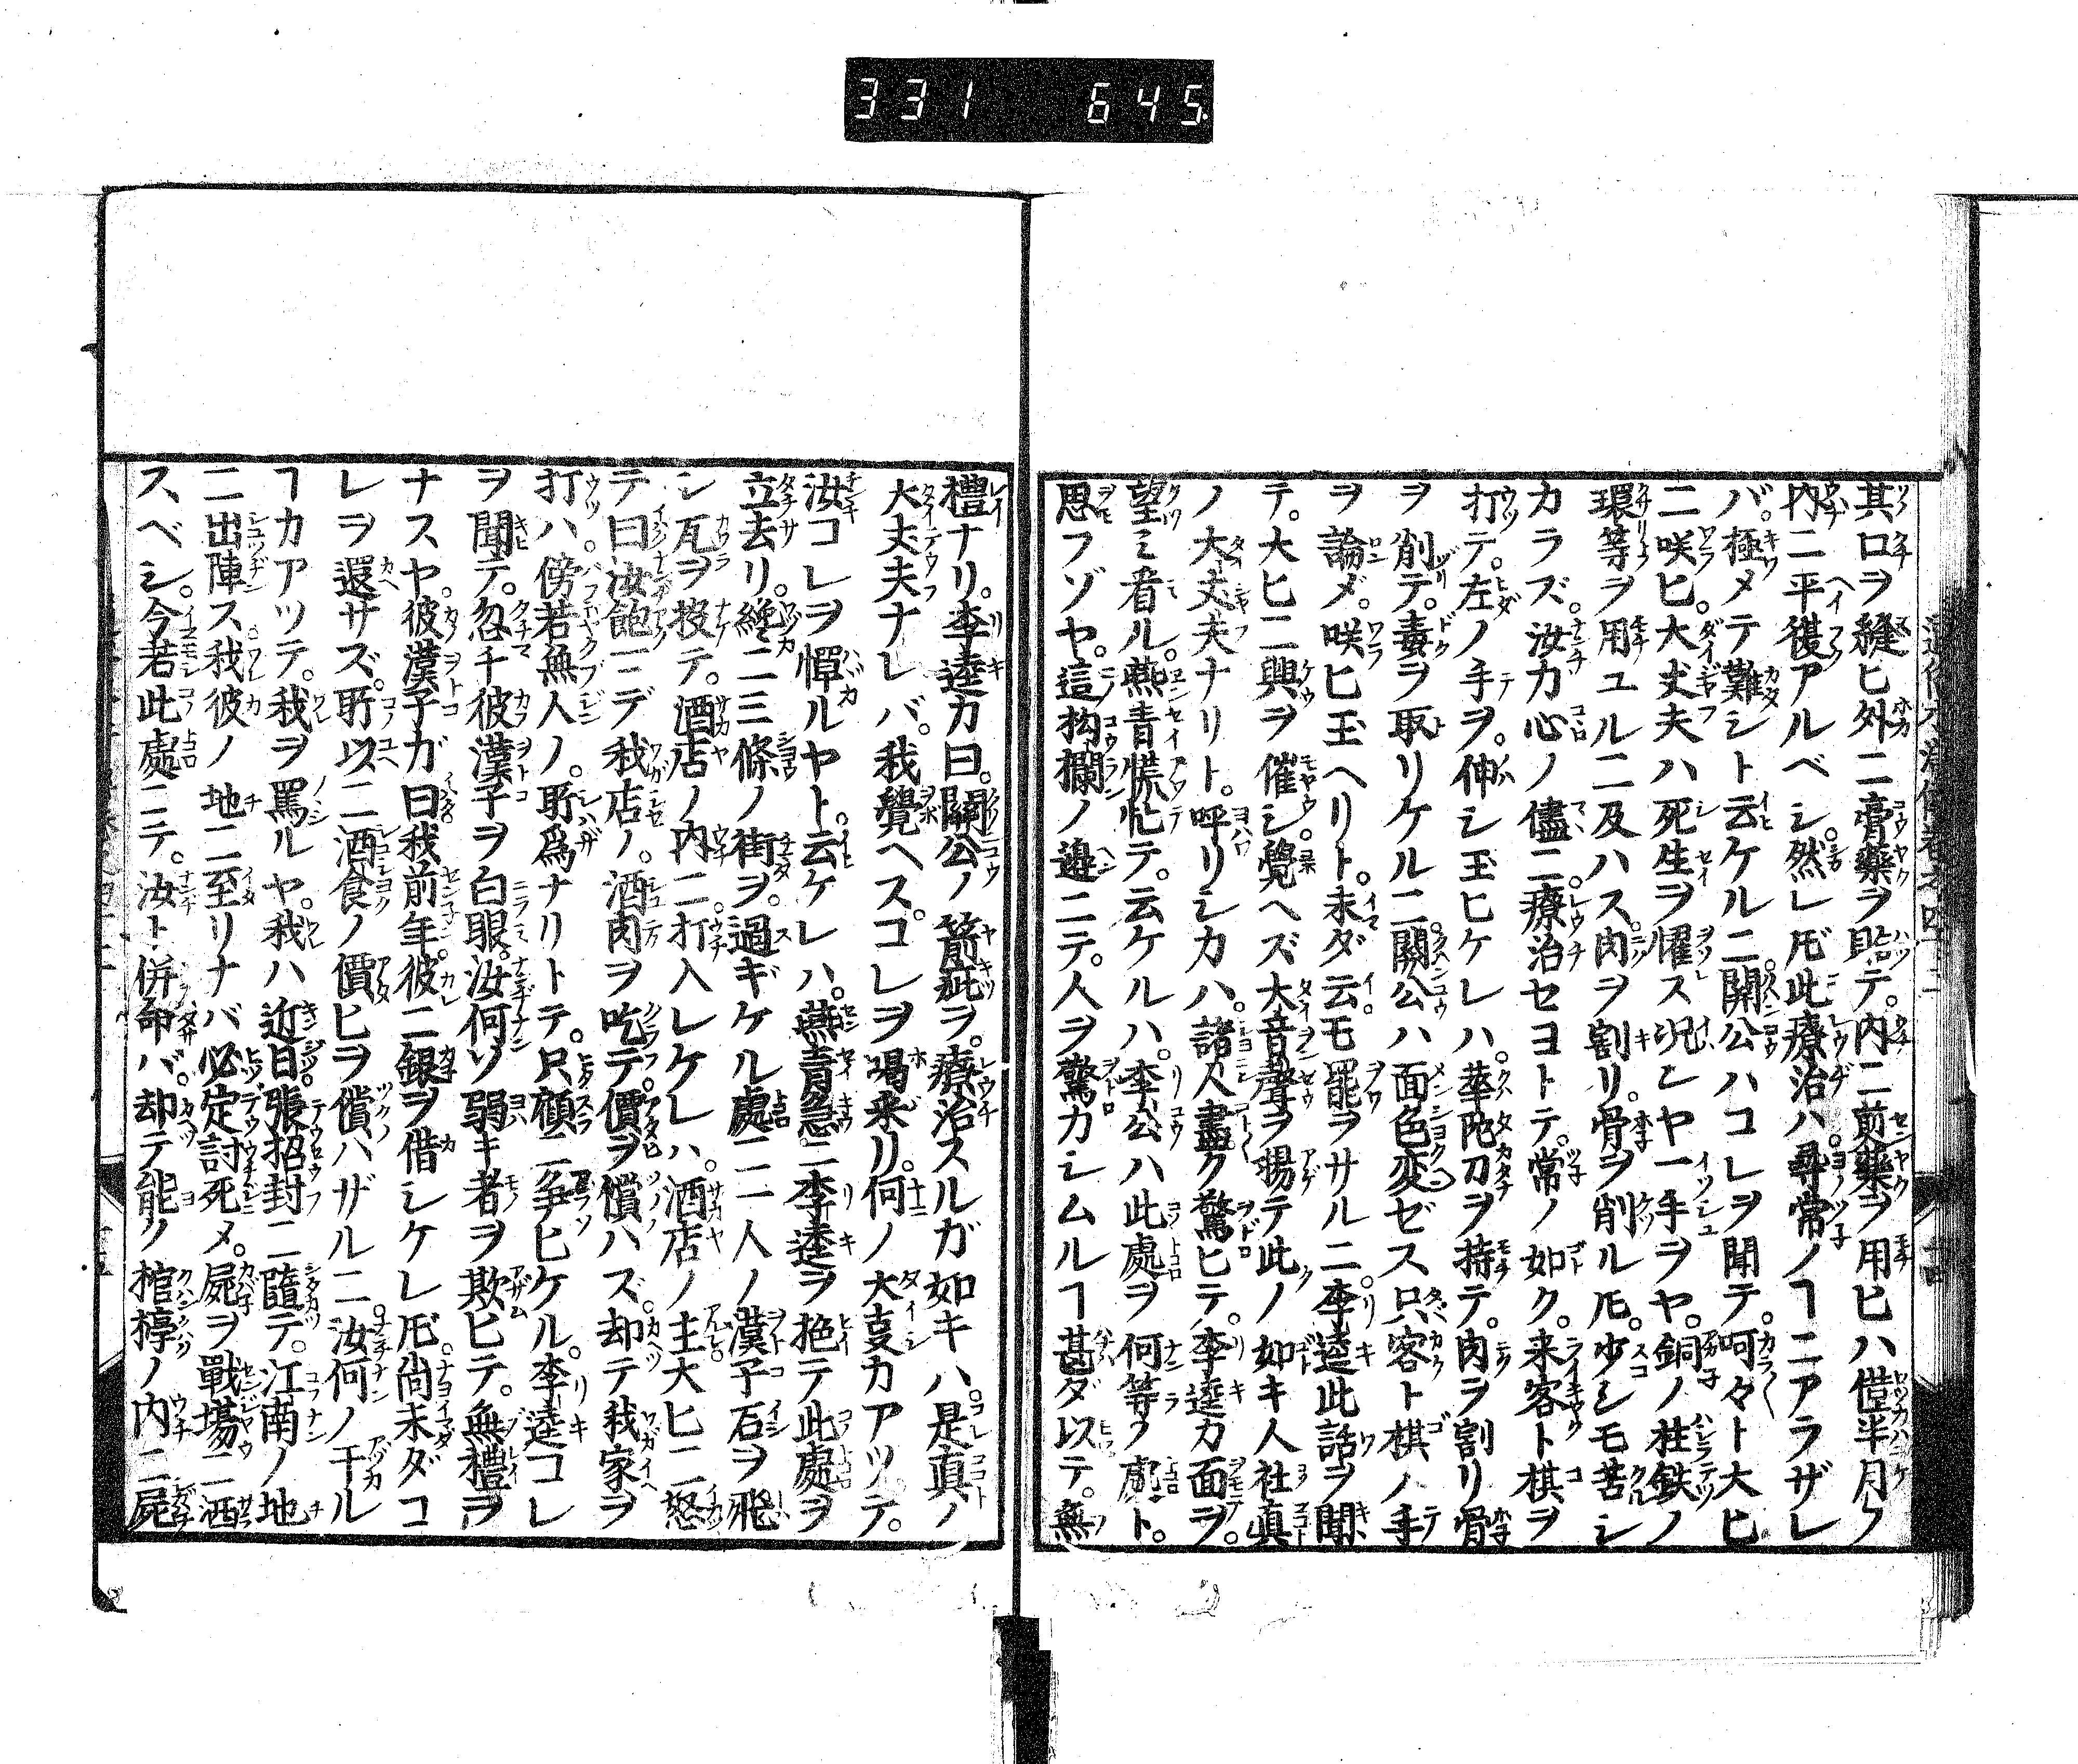 331 645
其口ヲ縫ヒ外ニ膏藥ヲ貼テ。内ニ煎藥ヲ用ヒハ僅半月ノ
内ニ平復アルベシ。然レ𪜈此療治ハ。尋常ノヿニアラザレ
バ。極メテ難シト云ケルニ。關公ハコレヲ聞テ。呵々ト大ヒ
ニ咲ヒ。大丈夫ハ死生ヲ懼ス况ンヤ一手ヲヤ。銅ノ柱鉄ノ
環等ヲ用ユルニ及ハス。肉ヲ割リ。骨ヲ削ル𪜈。少シモ苦シ
カラズ。汝カ心ノ儘ニ。療治セヨトテ。常ノ如ク。来客ト棋ヲ
打テ。左ノ手ヲ。伸シ玉ヒケレハ。華陀刀ヲ持テ。肉ヲ割リ骨
ヲ削テ。毒ヲ取リケルニ。關公ハ面色変ゼス只客ト棋ノ手
ヲ論メ。咲ヒ玉ヘリト。未ダ云モ罷ヲサルニ。李逵此話ヲ聞
テ。大ヒニ興ヲ催シ。覺ヘズ大音聲ヲ揚テ此ノ如キ人社真
ノ大丈夫ナリト。呼リシカハ。諸人盡ク驚ヒテ。李逵カ面ヲ。
望ミ看ル。燕青慌忙テ。云ケルハ。李公ハ此處ヲ何等ノ處ト。
思フゾヤ。這抅欄ノ邊ニテ。人ヲ驚カシムルヿ甚ダ以テ。無
禮ナリ。李逵カ曰。關公ノ箭疵ヲ。療治スルガ如キハ。是真ノ
大丈夫ナレバ。我覺ヘスコレヲ喝采リ。何ノ大叓カアツテ。
汝コレヲ憚ルヤト。云ケレハ。燕青急ニ李逵ヲ抱テ此處ヲ
立去リ。纔ニ三條ノ街ヲ。過ギケル處ニ一人ノ漢子石ヲ飛
シ瓦ヲ投テ。酒店ノ内ニ。打入レケレハ。酒店ノ主大ヒニ怒
テ曰汝飽ニデ我店ノ。酒肉ヲ吃テ。價ヲ償ハズ。却テ我家ヲ
打ハ。傍若無人ノ。所爲ナリトテ。只顧ニ爭ヒケル。李逵コレ
ヲ聞テ。忽千彼漢子ヲ白眼。汝何ソ弱キ者ヲ欺ヒテ。無禮ヲ
ナスヤ。彼漢子ガ曰我前年。彼ニ銀ヲ借シケレ𪜈。尚未ダコ
レヲ還サズ。所以ニ酒食ノ價ヒヲ償ハザルニ。汝何ノ干ル
ヿカアツテ。我ヲ罵ルヤ。我ハ近日。張招討ニ隨テ。江南ノ地
ニ出陣ス我彼ノ地ニ至リナバ必定討死メ。屍ヲ戰場ニ洒
スベシ。今若此處ニテ。汝ト併命バ。却テ能ノ棺槨ノ内ニ屍